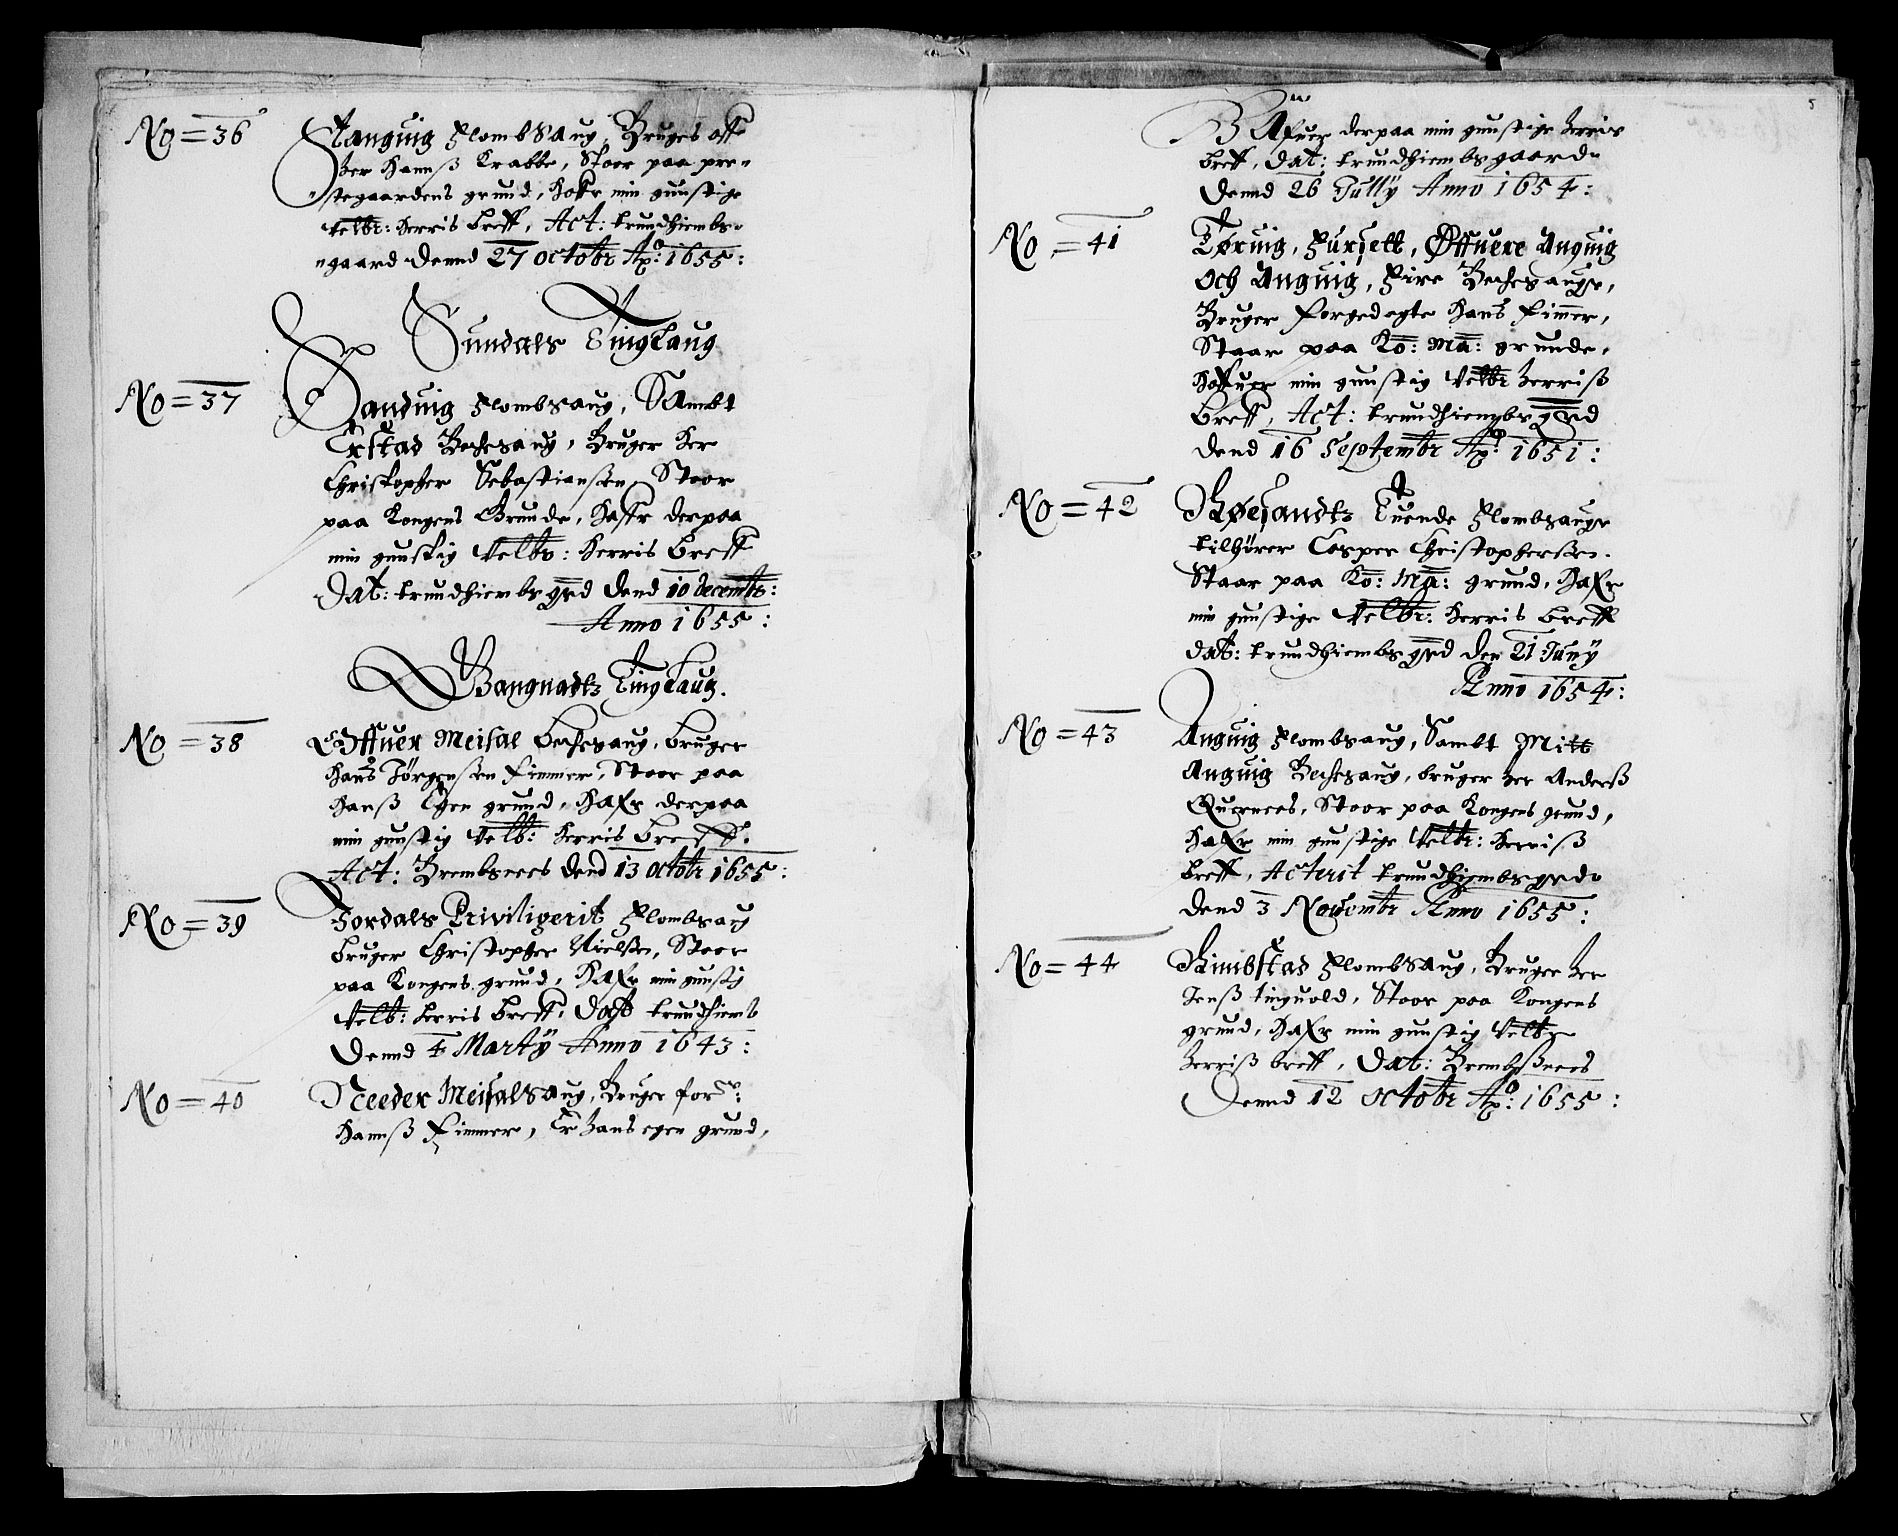 No = 36 Stanguig Flombsaug, Bruges aff
her Hannß Krabbe, Stoer paa pre=
=stegaardens grund, Haffr min gunstige
Velbr: Herris breff, Act: trundhiembs=
=gaard Dennd 27 octobr Ao: 1655:
Sundals Tinglaug
No = 37 Sanduig Flombsaug, Sambt
Erstad Beckesaug, Bruger her
Christopher Sebastianßen, Stoer
paa Kongens Grunde, Haffr derpaa
min gunstig Velbr: Herris breff
Dat: trundhiembs grd Dend 10 decembr:
Anno 1655:
Bangnadtz Tinglaug.
No = 38 Offuer Meisal beckesaug, bruger
Hans Jörgenßen Fimmer, Stoer paa
Hanß Egen grund, Hafr derpaa
min gunstig Velb: Herris breff.
Act: Brembsnees Dend 13 octobr 1655:
No = 39 Jordals Priviligerit Flombsaug
bruger Christopher Nielßen, Stoer
paa Kongens grund, Hafr min gunstig
Velb: herris breff, Dat trundhiemb
Dennd 4 Marty Anno 1643:
No = 40 Needer Meisalsaug, Bruger for:
Hannß Fimmer, Er hans egen grund,
5
Hafuer derpaa min gunstige herris
breff, Dat: trundhiembsgaard
Dennd 26 Jully Anno 1654:
No = 41 Toruig, Fursett, Øffuere Anguig
och Anguig, Fire Beckesauge,
Bruger forgedagte Hans Fimmer,
Staar paa Ko: Ma: grunde,
Hafuer min gunstig Velbr herriß
breff, Act: trundhiembs grd
Dend 16 Septembr Ao: 1651:
No = 42 Røesandtz Tuende Flombsauge
tilhörer Casper Christopherßen.
Staar paa Ko: Ma: grund, Hafr
min gunstige Velbr: Herris breff
dat: trundhiembs grd den 21 Juny
Anno 1654:
No = 43 Anguig Flombsaug, Sambt Mitt
Anguig Beckesaug, bruger her Anderß
Quernees, Stoer paa Kongens grund,
Hafr min gunstige Velbr: Herriß
breff, Acterit trundhiembsgrd
Dend 3 Novembr Anno 1655:
No = 44 Rimbstad Flombsaug, Bruger her
Jenß tinguold, Stoer paa Kongens
grund, Hafr min gunstig Velb
herriß breff, Dat: Brembßnees
Dennd 12 octobr Ao: 1655: